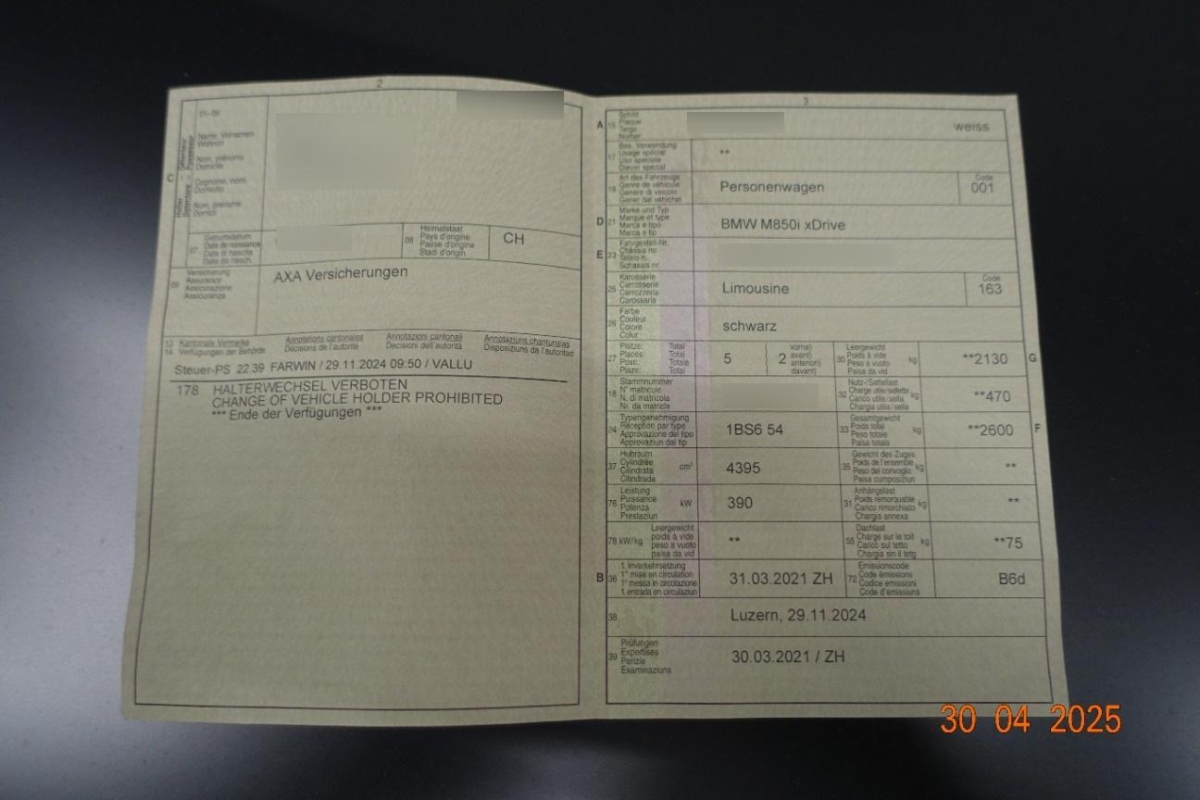 2
01-06
C
Name, Vornamen
Wohnort
Nom, prénoms
Domicile
Cognome, nomi
Domicilio
Num, prenums
Domicil
07
Geburtsdatum
Date de naissance
Data di nascita
Data da nasch.
08
Heimatstaat
Pays d'origine
Paese d'origine
Stadi d'origin
CH
09
Versicherung
Assurance
Assicurazione
Assicuranza
AXA Versicherungen
13 Kantonale Vermerke
14 Verfügungen der Behörde
Annotations cantonales
Décisions de l'autorité
Annotazioni cantonali
Decisioni dell'autorità
Annotaziuns chantunalas
Disposiziuns da l'autoritad
Steuer-PS 22.39 FARWIN / 29.11.2024 09:50 / VALLU
178 HALTERWECHSEL VERBOTEN
CHANGE OF VEHICLE HOLDER PROHIBITED
*** Ende der Verfügungen ***
3
A 15
Schild
Plaque
Targa
Numer
weiss
17
Bes. Verwendung
Usage spécial
Uso speciale
Diever spezial
**
19
Art des Fahrzeugs
Genre de véhicule
Genere di veicolo
Gener dal vehichel
Personenwagen
Code
001
D 21
Marke und Typ
Marque et type
Marca e tipo
Marca e tip
BMW M850i xDrive
E 23
Fahrgestell-Nr.
Châssis no
Telaio n.
Schassis nr.
25
Karosserie
Carrosserie
Carrozzeria
Carossaria
Limousine
Code
163
26
Farbe
Couleur
Colore
Colur
schwarz
27
Plätze: Total
Places: Total
Posti: Totale
Plazs: Total
5
2
vorne)
avant)
anteriori)
davant)
30
Leergewicht
Poids à vide
Peso a vuoto
Paisa da vid
kg
**2130
G
18
Stammnummer
N° matricule
N. di matricola
Nr. da matricla
32
Nutz-/Sattellast
Charge utile/sellette
Carico utile/sella
Chargia utila/sella
kg
**470
24
Typengenehmigung
Réception par type
Approvazione del tipo
Approvaziun dal tip
1BS6 54
33
Gesamtgewicht
Poids total
Peso totale
Paisa totala
kg
**2600
F
37
Hubraum
Cylindrée
Cilindrata
Cilindrada
cm³
4395
35
Gewicht des Zuges
Poids de l'ensemble
Peso del convoglio
Paisa cumposiziun
kg
**
76
Leistung
Puissance
Potenza
Prestaziun
kW
390
31
Anhängelast
Poids remorquable
Carico rimorchiato
Chargia annexa
kg
**
78 kW/kg
Leergewicht
poids à vide
peso a vuoto
paisa da vid
**
55
Dachlast
Charge sur le toit
Carico sul tetto
Chargia sin il tetg
kg
**75
B 36
1. Inverkehrsetzung
1re mise en circulation
1a messa in circolazione
1. entrada en circulaziun
31.03.2021 ZH
72
Emissionscode
Code émissions
Codice emissioni
Code d'emissiuns
B6d
38
Luzern, 29.11.2024
39
Prüfungen
Expertises
Perizie
Examinaziuns
30.03.2021 / ZH
30 04 2025